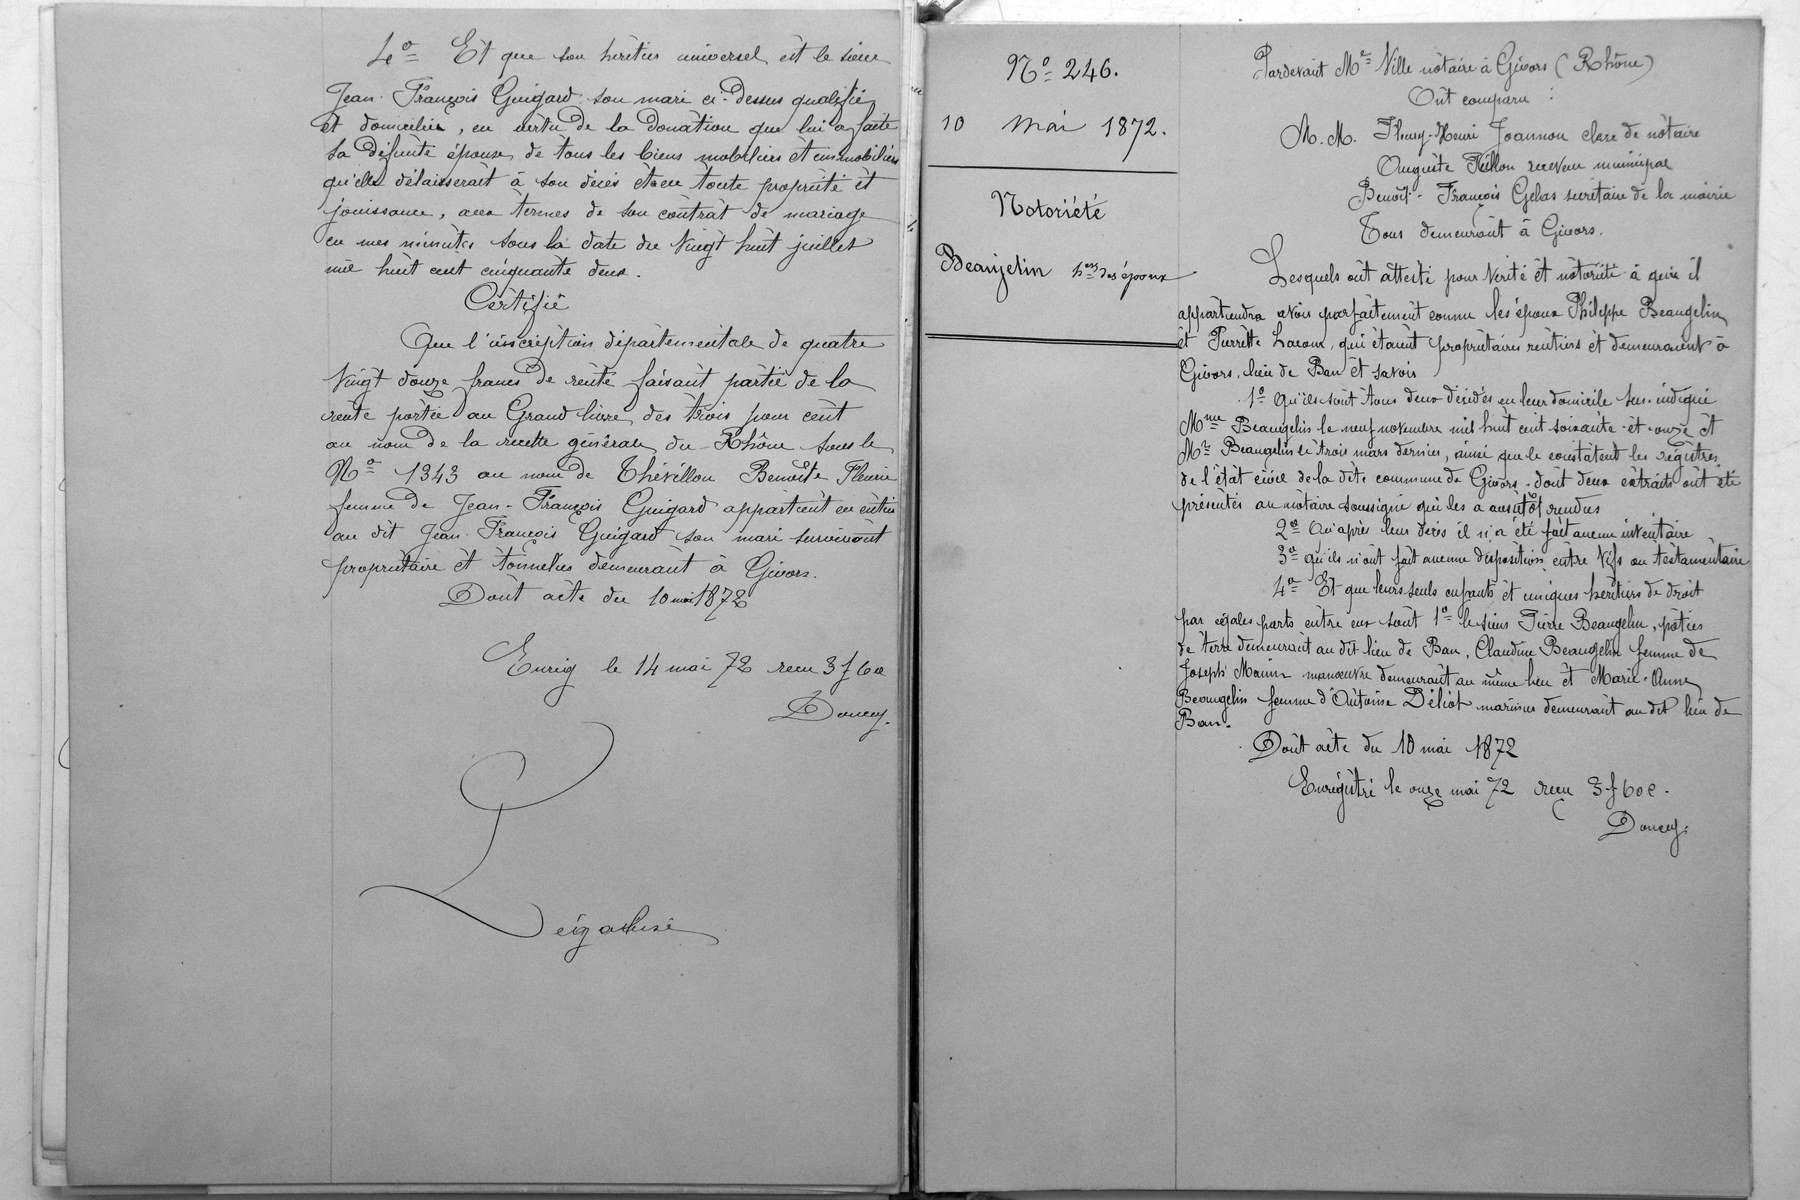 4o Et que son héritier universel est le sieur
Jean-François Guigard son mari ci-dessus qualifié
et domicilié, en vertu de la donation que lui a faite
sa défunte épouse de tous les biens mobiliers et immobiliers
qu'elle délaisserait à son décès et en toute propriété et
jouissance, aux termes de son contrat de mariage
en mes minutes sous la date du vingt huit juillet
mil huit cent cinquante deux.
Certifié
Que l'inscription départementale de quatre
vingt douze francs de rente faisant partie de la
rente portée au Grand livre des trois pour cent
au nom de la recette générale du Rhône sous le
No 1343 au nom de Thévillon Benoîte Fleurie
femme de Jean-François Guigard appartient en entier
au dit Jean-François Guigard son mari survivant
propriétaire et tonnelier demeurant à Givors.
Dont acte du 10 mai 1872
Enreg le 14 mai 72 recu 3f 60c
Légalisé
No 246.
10 mai 1872.
Notoriété
Beaujelin hers des époux
Pardevant Me Ville notaire à Givors (Rhône)
Ont comparu :
M.M. Fleury-Henri Joannon clerc de notaire
Auguste receveur municipal
Benoît-François Gelas secrétaire de la mairie
Tous demeurant à Givors.
Lesquels ont attesté pour vérité et notoriété à qui il
appartiendra avoir parfaitement connu les époux Philippe Beaugelin
et Pierrette Lacour, qui étaient propriétaires rentiers et demeuraient à
Givors, lieu de Ban et savoir
1o Qu'ils sont tous deux décédés en leur domicile sus-indiqué
Mme Beaugelin le neuf novembre mil huit cent soixante et onze et
Mr Beaugelin le trois mars dernier, ainsi que le constatent les registres
de l'état civil de la dite commune de Givors, dont deux extraits ont été
présentés au notaire soussigné qui les a aussitôt rendus
2o Qu'après leur décès il n'a été fait aucun inventaire
3o Qu'ils n'ont fait aucune disposition entre vifs ou testamentaire
4o Et que leurs seuls enfants et uniques héritiers de droit
par égales parts entre eux sont 1o le sieur Pierre Beaugelin, potier
de terre demeurant au dit lieu de Ban, Claudine Beaugelin femme de
Joseph manœuvre demeurant au même lieu et Marie-Anne
Beaugelin femme d'Antoine Déliot marinier demeurant au dit lieu de
Ban.
Dont acte du 10 mai 1872
Enregistré le onze mai 72 recu 3f 60c.